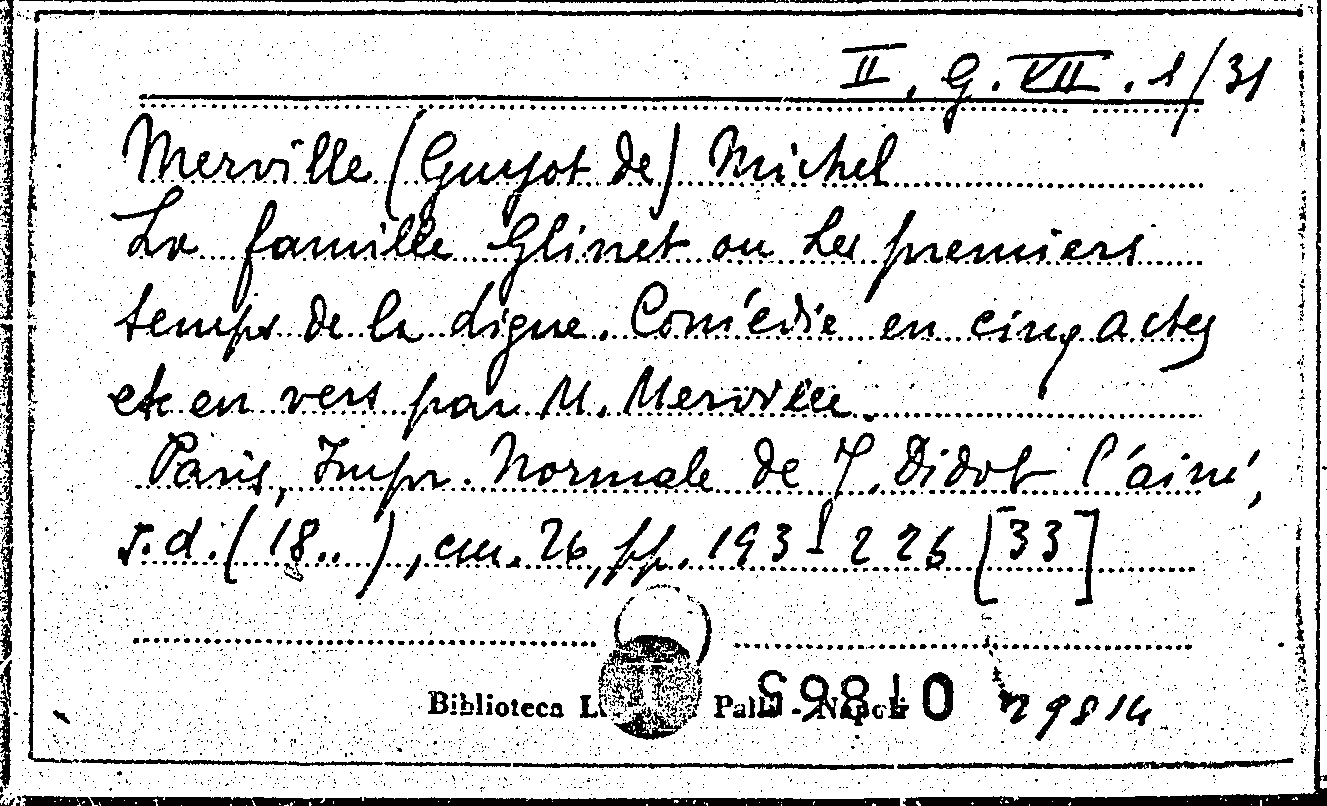 II. G. VII. 1/31
Merville (Guyot de) Michel
La famille Glinet ou Les premiers
temps de la digue. Comédie en cinq actes
et en vers par M. Merville.
Paris, Impr. Normale de J. Didot l'ainé,
s.d. (18..), cm. 26, pp. 193-226 [33]
Biblioteca Palli - Napoli
29814